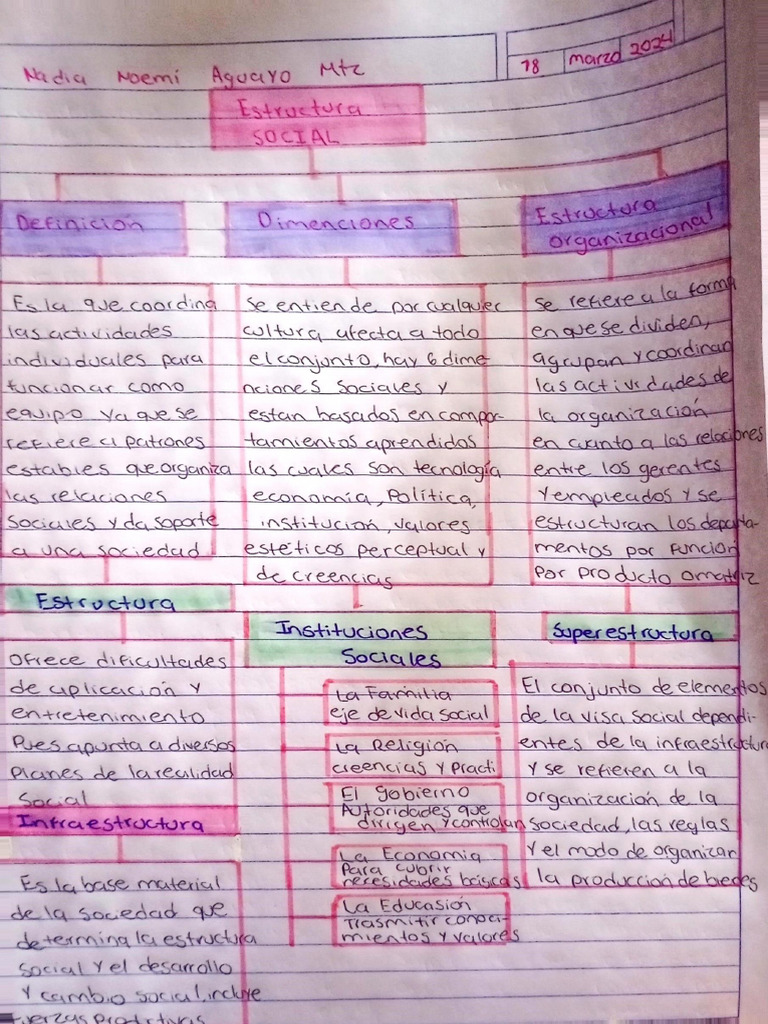 Nadia Noemi Aguayo Mtz
18 marzo 2024
Estructura
SOCIAL
Definición
Es la que coordina
las actividades
individuales para
funcionar como
equipo ya que se
refiere a patrones
estables que organiza
las relaciones
sociales y da soporte
a una sociedad
Dimenciones
Se entiende por cualquier
cultura afecta a todo
el conjunto, hay 6 dime
nciones sociales y
estan basados en compor-
tamientos aprendidos
las cuales son tecnología
economía, Política,
institución, valores
estéticos perceptual y
de creencias
Estructura
organizacional
Se refiere a la forma
en que se dividen,
agrupan y coordinan
las actividades de
la organización
en cuanto a las relaciones
entre los gerentes
y empleados y se
estructuran los departa-
mentos por función
Por producto o matriz
Estructura
Ofrece dificultades
de aplicación y
entretenimiento
Pues apunta a diversos
planes de la realidad
Social
Infraestructura
Es la base material
de la sociedad que
determina la estructura
social y el desarrollo
y cambio social, incluye
fuerzas productivas
Instituciones
Sociales
La Familia
eje de vida social
La Religión
creencias y practi
El gobierno
Autoridades que
dirigen y controlan
La Economia
Para cubrir
necesidades básicas
La Educasión
Trasmitir conoci-
mientos y valores
Superestructura
El conjunto de elementos
de la visa social dependi-
entes de la infraestructura
y se refieren a la
organización de la
sociedad, las reglas
y el modo de organizar
la producción de biedes